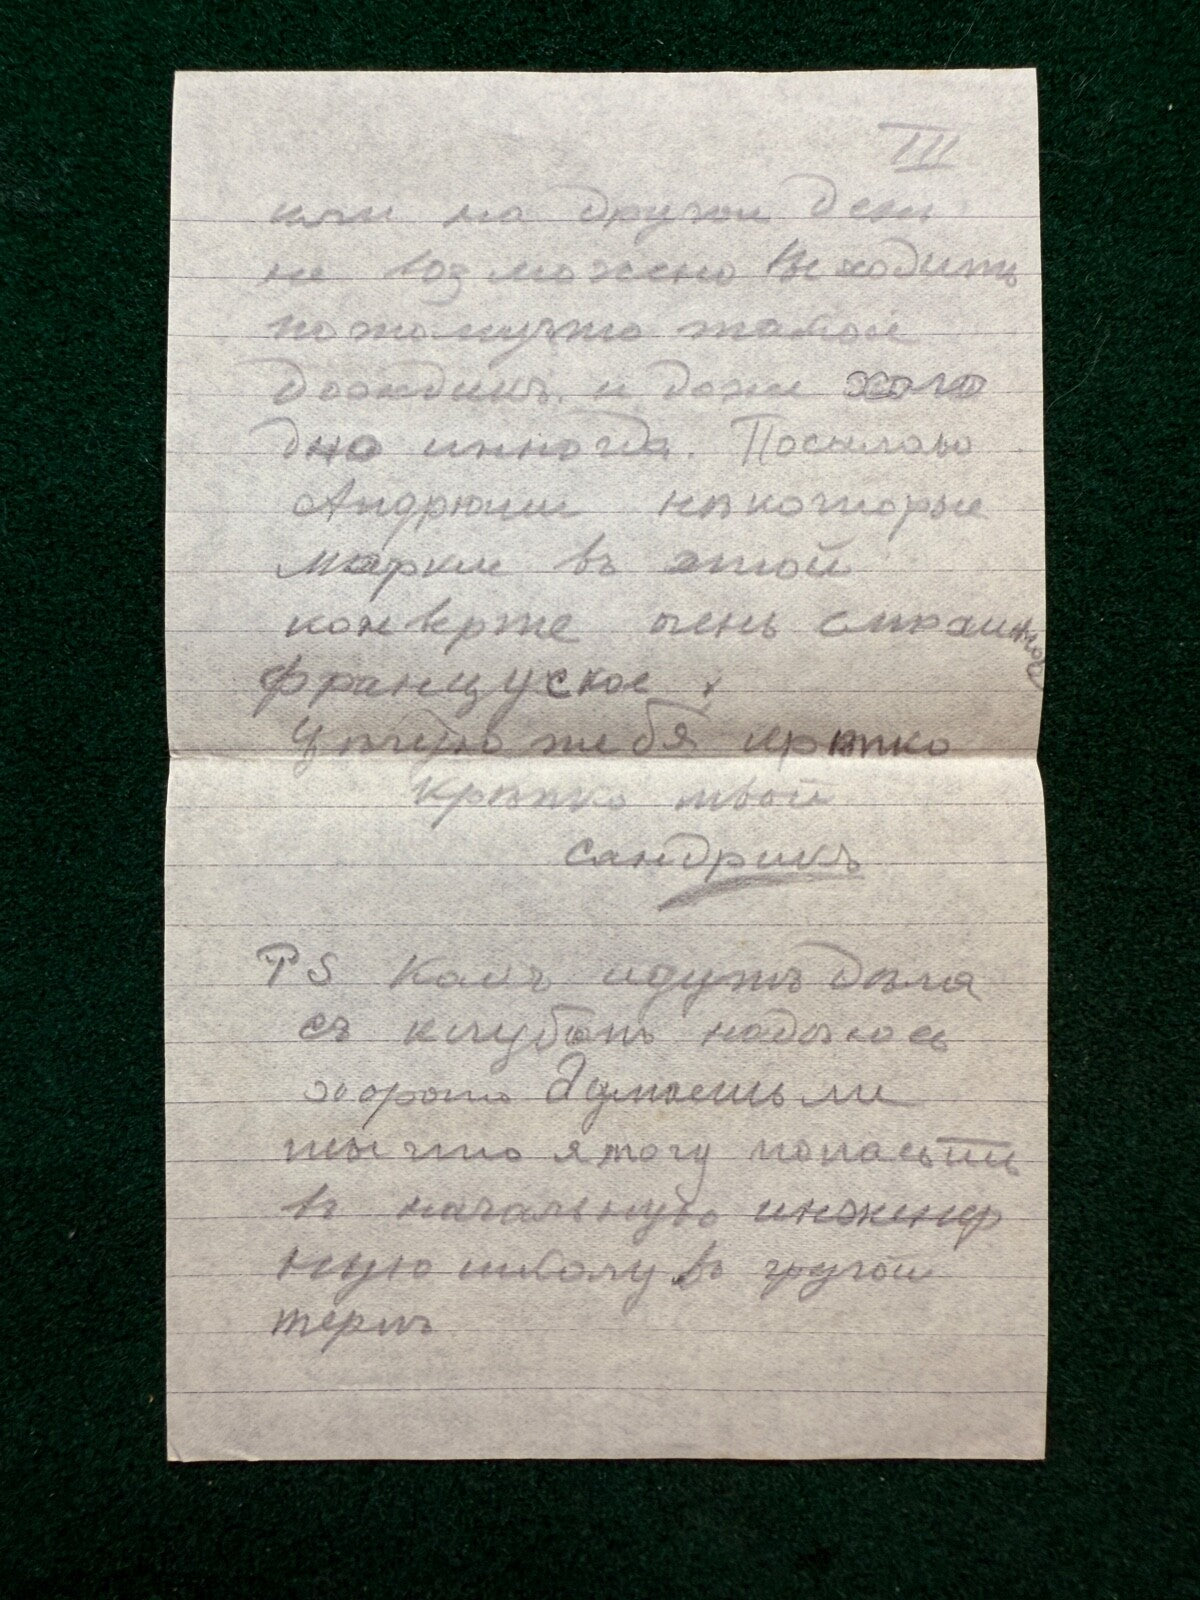 III
или на другой день
не возможно выходить
потомучто такой
дождикъ и даже холо
дно иногда. Посылаю
Андрюши нѣкоторые
марки въ этой
конверте очень страшное
француское.
Цѣлую тебя крѣпко
крѣпко твой
Сандрикъ
PS Какъ идутъ дѣла
съ клубомъ надѣюсь
хорошо Думаешь ли
ты что я могу попасьть
въ начальную инженер
ную школу въ другой
термъ